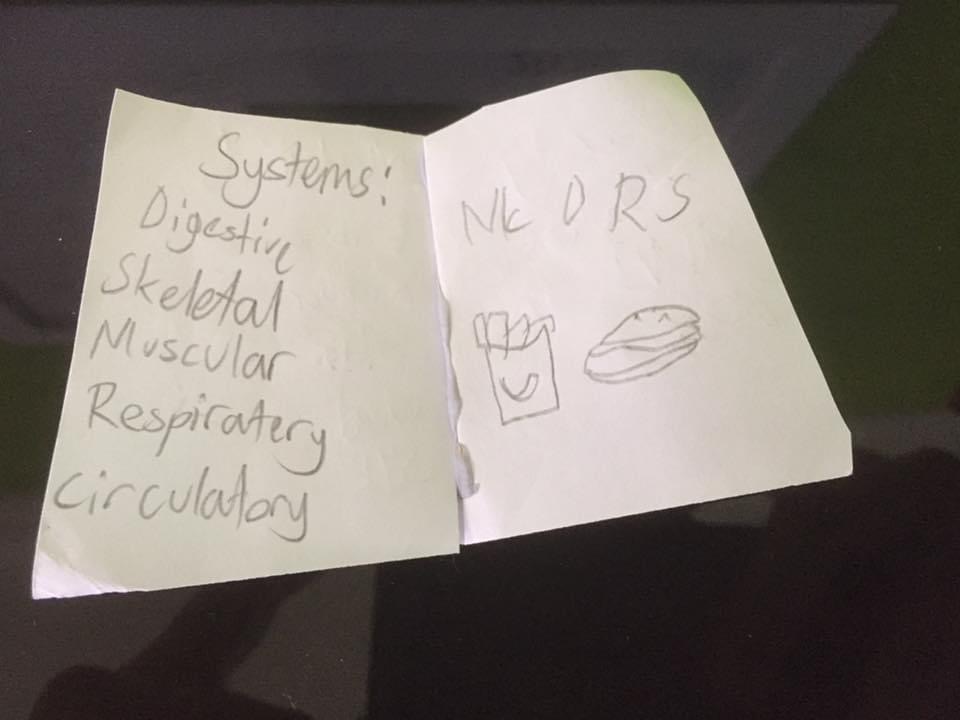 Systems:
Digestive
Skeletal
Muscular
Respiratery
Circulatory
Nk D R S